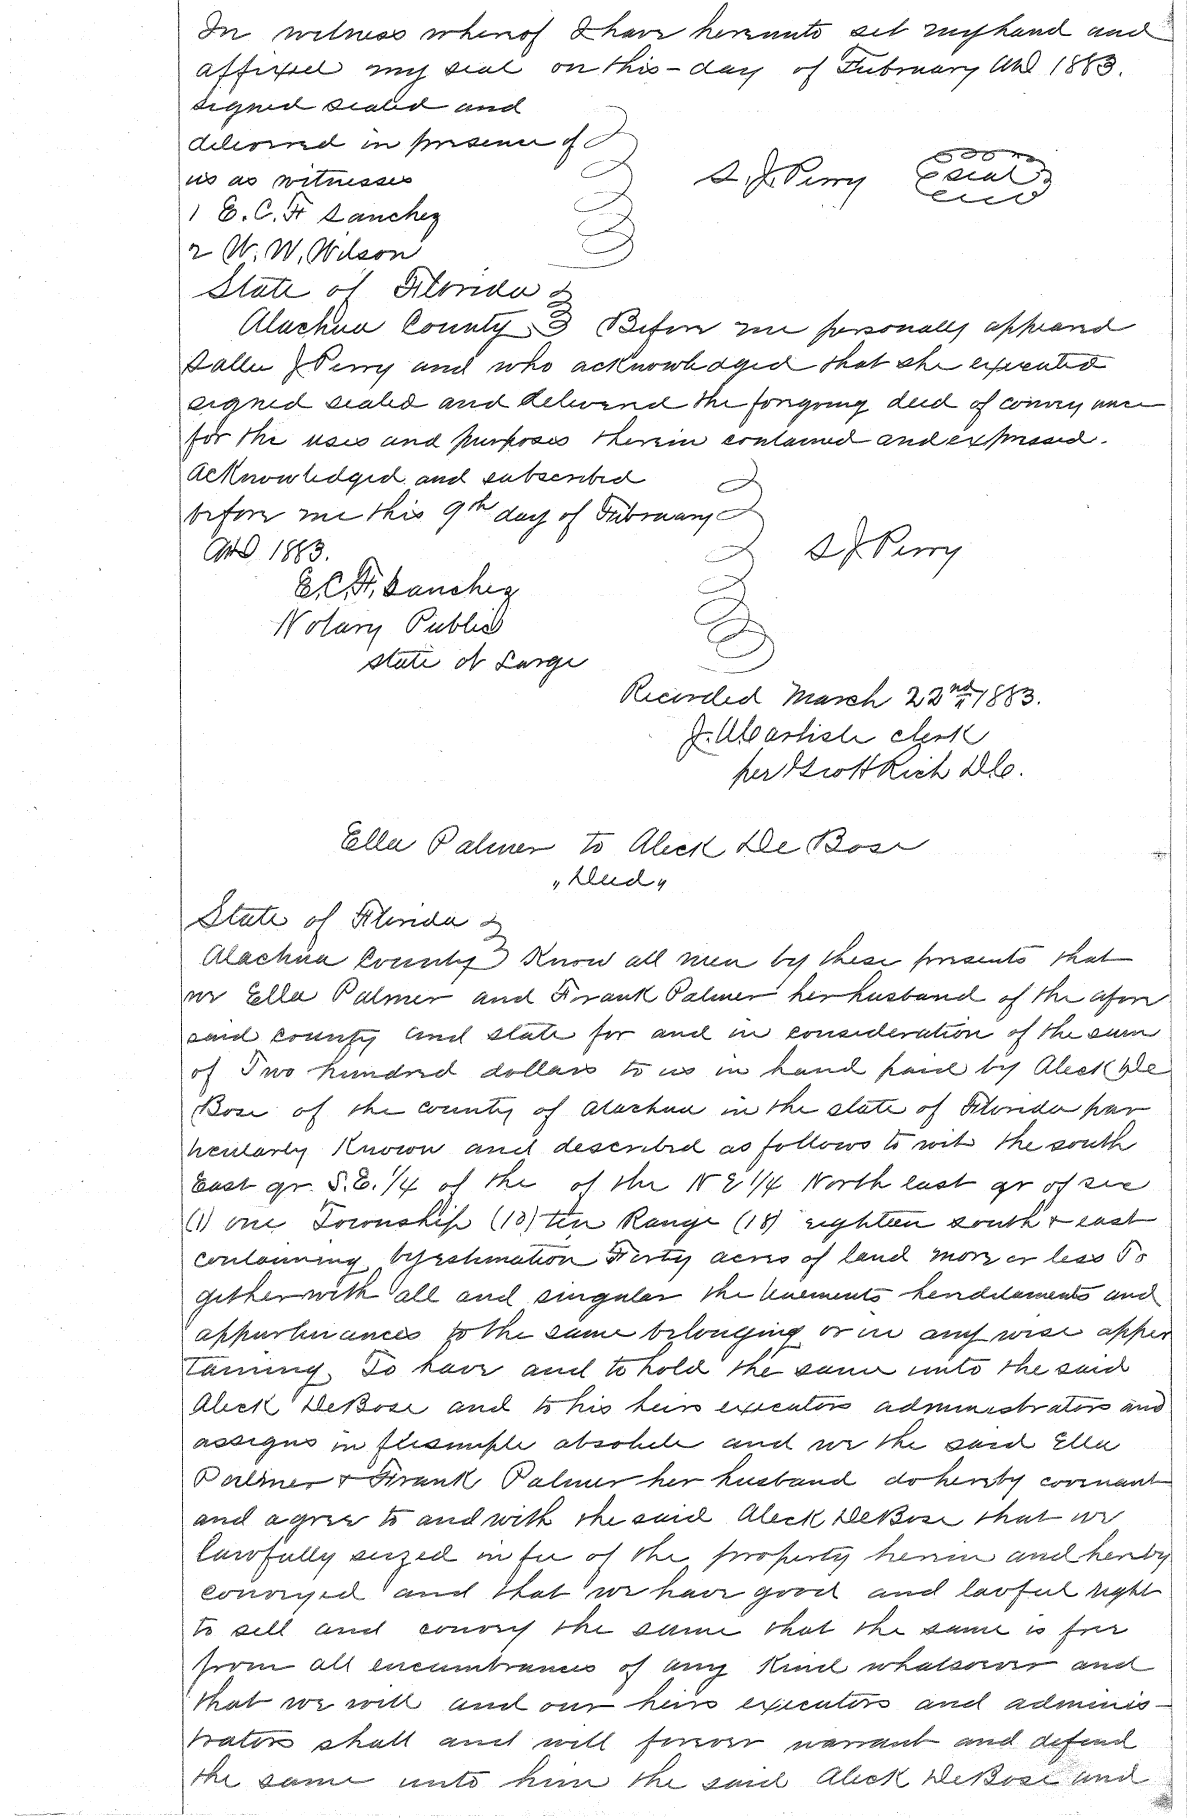 In witness whereof I have hereunto set my hand and
affixed my seal on this - day of February AD 1883.
signed sealed and
delivered in presence of
us as witnesses
S. J. Perry seal
1 E. C. F. Sanchez
2 W. W. Wilson
State of Florida
Alachua County Before me personally appeared
Sallie J Perry and who acknowledged that she executed
signed sealed and delivered the foregoing deed of conveyance
for the uses and purposes therein contained and expressed.
Acknowledged and subscribed
before me this 9th day of February
AD 1883. S J Perry
E. C. F. Sanchez
Notary Public
state at Large
Recorded March 22nd 1883.
J. A. Carlisle clerk
per Scott Rich D.C.
Ella Palmer to Aleck De Bose
"Deed"
State of Florida
Alachua County Know all men by these presents that
we Ella Palmer and Frank Palmer her husband of the afore
said county and state for and in consideration of the sum
of Two hundred dollars to us in hand paid by Aleck De
Bose of the county of Alachua in the state of Florida par
ticularly Known and described as follows to wit the south
East qr. S.E. 1/4 of the of the N E 1/4 North east qr of sec
(1) one Township (10) ten Range (18) eighteen south & east
containing by estimation Forty acres of land more or less To
gether with all and singular the tenements hereditaments and
appurtenances to the same belonging or in any wise apper
taining, To have and to hold the same unto the said
Aleck DeBose and to his heirs executors administrators and
assigns in fee simple absolute and we the said Ella
Palmer & Frank Palmer her husband do hereby covenant
and agree to and with the said Aleck DeBose that we
lawfully seized in fee of the property herein and hereby
conveyed and that we have good and lawful right
to sell and convey the same that the same is free
from all encumbrances of any Kind whatsoever and
that we will and our heirs executors and adminis-
trators shall and will forever warrant and defend
the same unto him the said Aleck DeBose and